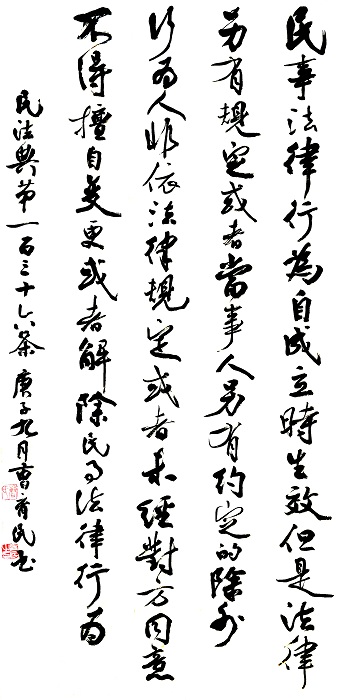 民事法律行為自成立時生效但是法律
另有規定或者當事人另有約定的除外
行為人非依法律規定或者未經對方同意
不得擅自變更或者解除民事法律行為
民法典第一百三十六条 庚子九月曹首民书